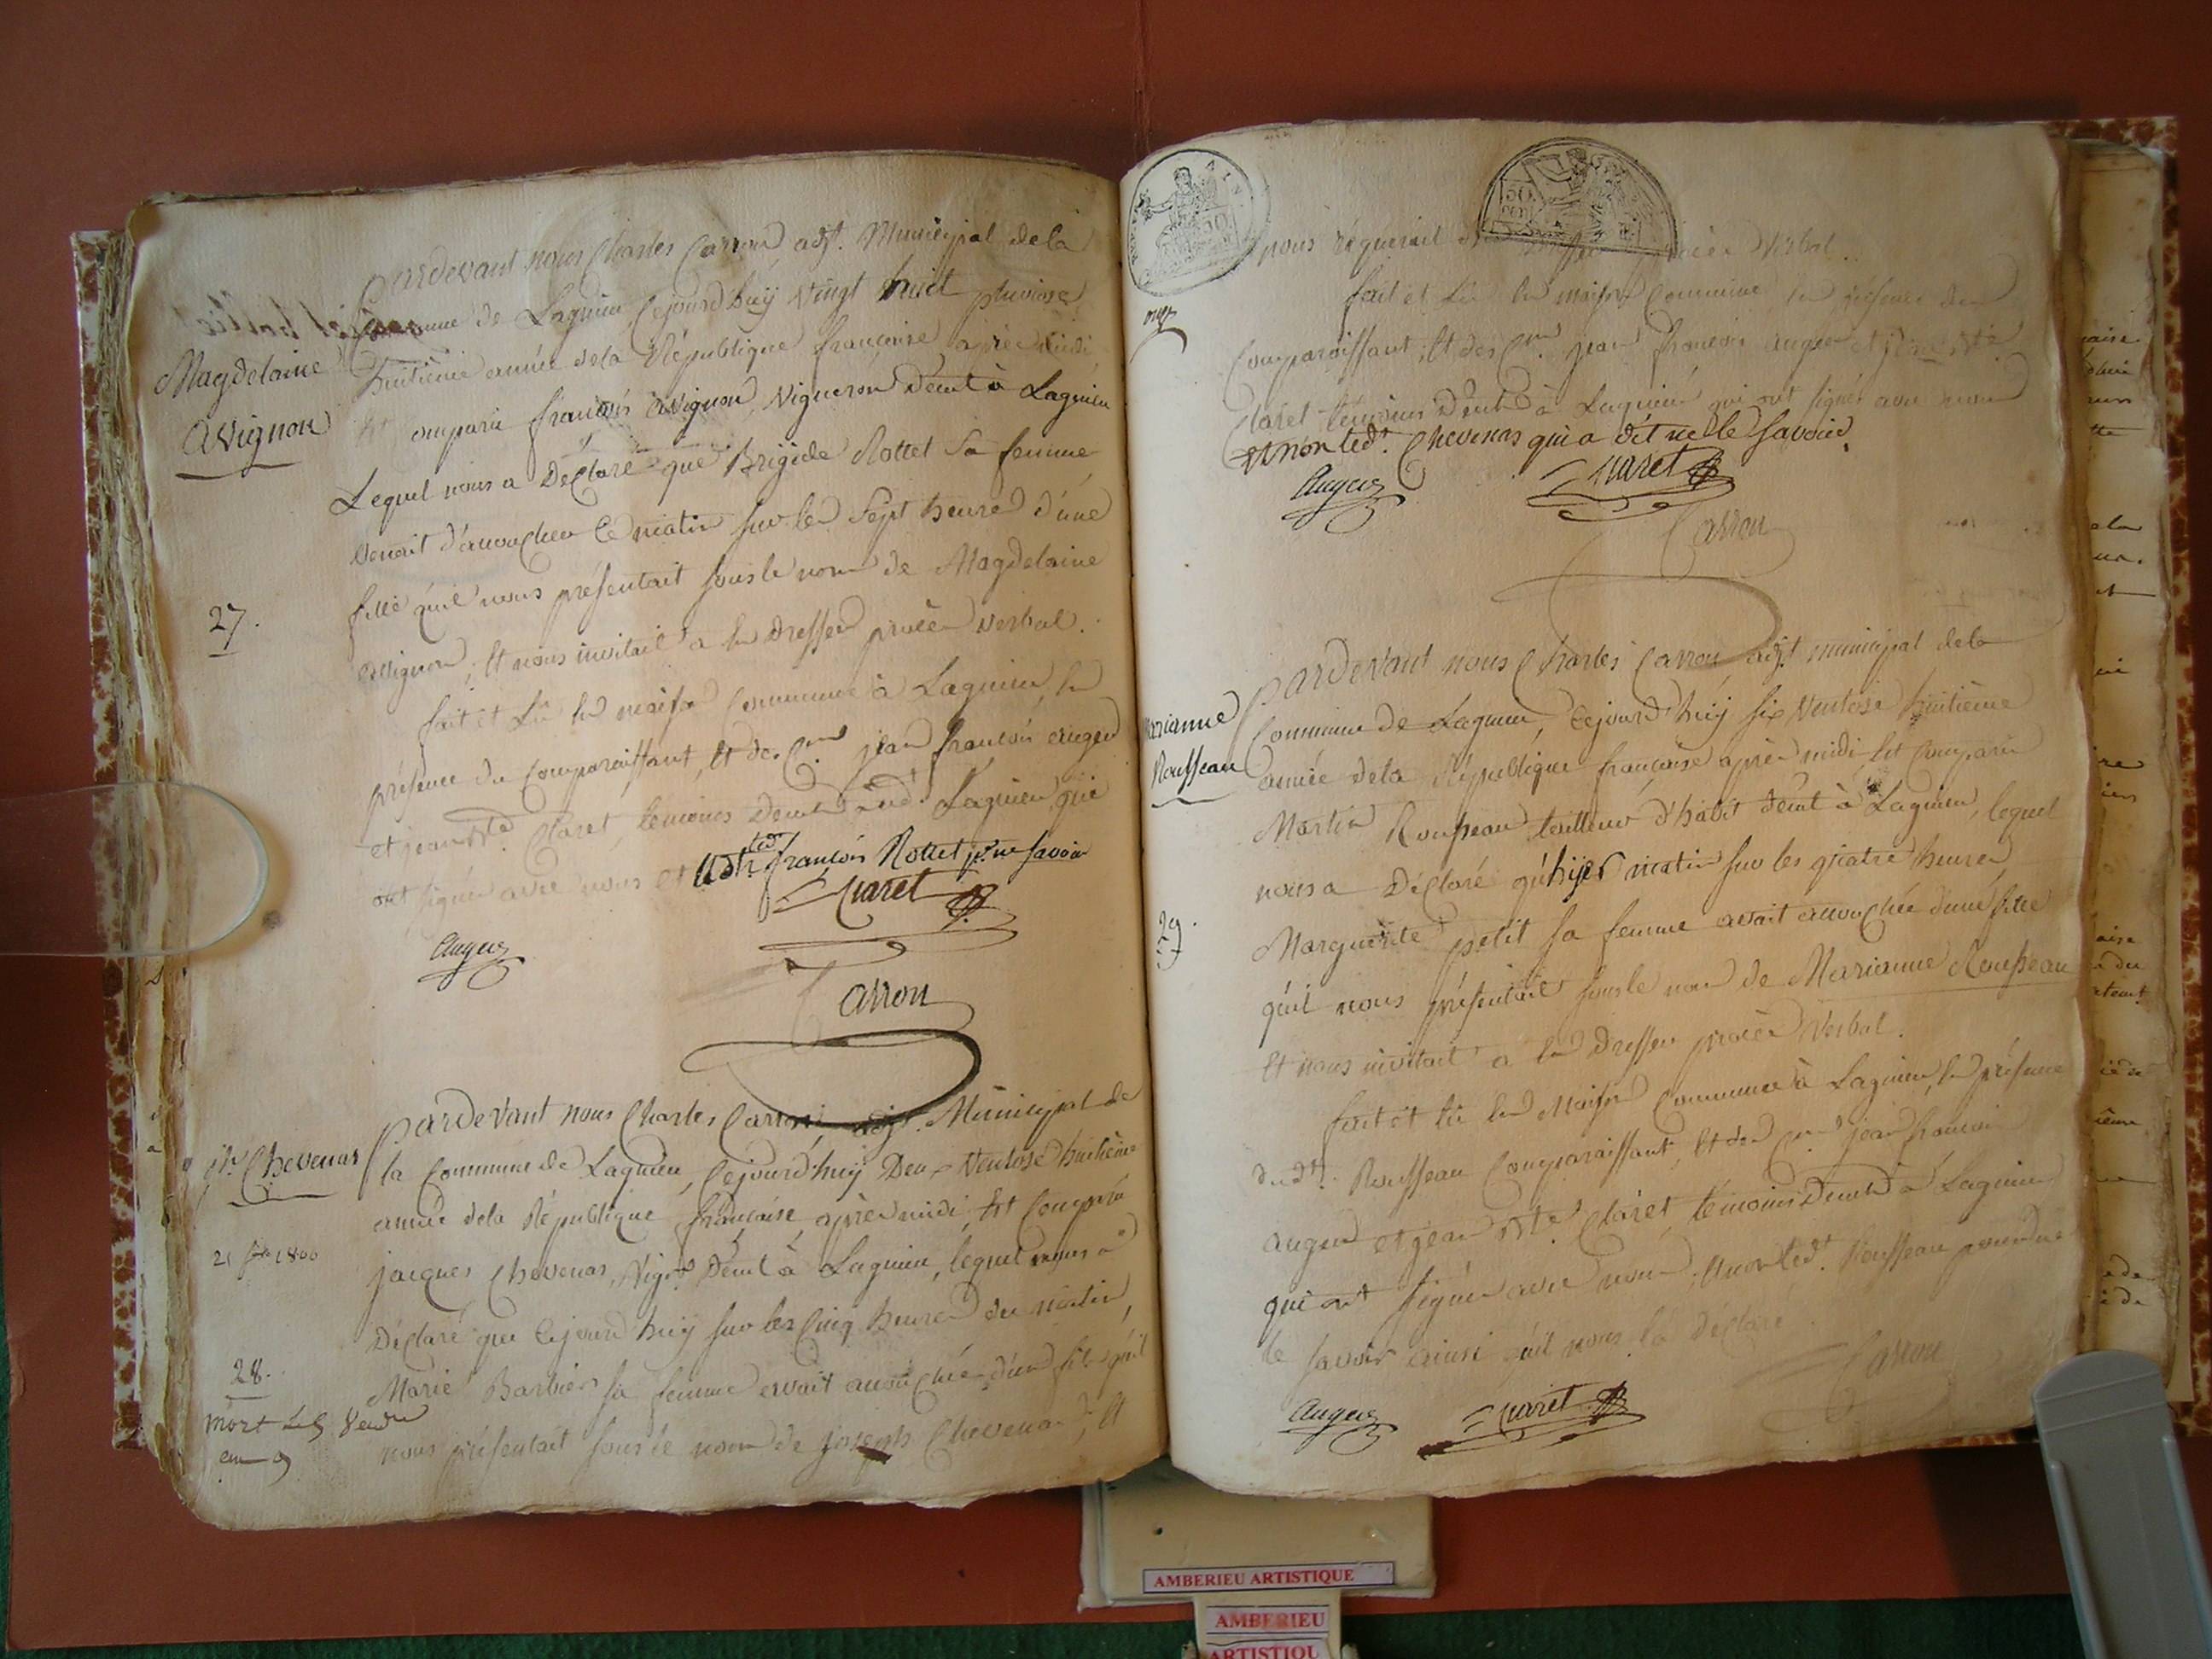 Magdelaine
Avignon
27.
Pardevant nous Charles Carron adjt. Municipal dela
Commune de Lagnieu, Cejourd'huÿ vingt huit pluviose
huitième année dela République françoise après midi
Est Comparu françois avignon, Vigneron Demt à Lagnieu
Lequel nous a Déclaré que Brigide Rottet Sa femme
venait d'accoucher Ce matin sur les Sept heures d'une
fille qu'il nous présentait sous le nom de Magdelaine
avignon, Et nous invitait a En Dresser procès verbal.
fait et Lu En maison Commune à Lagnieu, En
présence du Comparaissant, Et des Cens jean françois auger
et jean Bte Claret, témoins Demts aud. Lagnieu, qui
ont signés avec nous et françois Rottet pr. ne savoir
Claret
Auger
Carron
jh Chevenas
21 1800
28.
mort Le 5 Vend
an 9
Pardevant nous Charles Carron, adjt. Municipal de
la Commune de Lagnieu, Cejourd'huy Deux Ventose huitième
année dela République française, après midi, Est Comparu
jacques Chevenas, Vign Demt à Lagnieu, lequel nous a
Déclaré que Cejourd'huy sur les Cinq heures du matin,
Marie Barbier sa femme avait accouchée d'un fils qu'il
nous présentait sous le nom de joseph Chevenas, Et
nous réquerait Verbal.
fait et Lu En maison Commune En présence du
Comparaissant, Et des Cens jean françois auger et jean Bte
Claret témoins Demts à Lagnieu qui ont signés avec nous
et non led. Chevenas qui a dit ne le savoir.
Auger
Claret
Carron
Marianne
Rousseau
29.
Pardevant nous Charles Carron adjt municipal dela
Commune de Lagnieu, Cejourd'huÿ six Ventose huitième
année dela République française après midi, Est Comparu
Martin Rousseau tailleur d'habit Demt à Lagnieu, lequel
nous a Déclaré qu'hijer matin sur les quatre heures
Marguerite petit sa femme avait accouchée d'une fille
qu'il nous présentait sous le nom de Marianne Rousseau
Et nous invitait a En Dresser procès Verbal.
fait et lu En Maison Commune à Lagnieu, En présence
dudt. Rousseau Comparaissant, Et des Cens jean françois
auger et jean Bte Claret, témoins Demts à Lagnieu
qui ont signés avec nous, Et non led. Rousseau pour ne
le savoir ainsi qu'il nous l'a déclaré.
Carron
Auger
Claret
AMBERIEU ARTISTIQUE
AMBERIEU